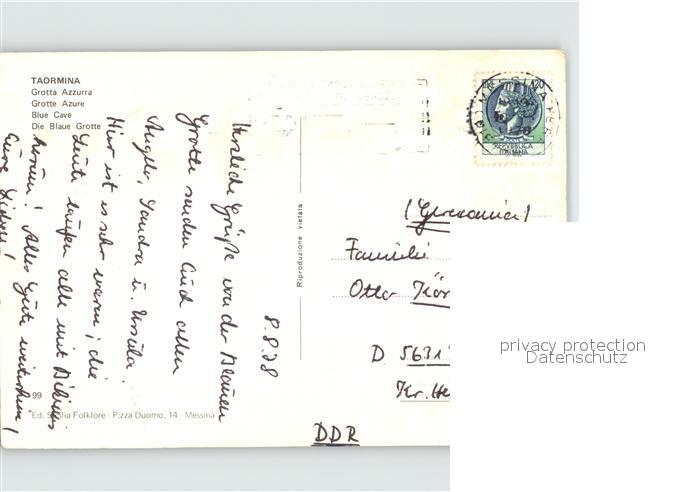 TAORMINA
Grotta Azzurra
Grotte Azure
Blue Cave
Die Blaue Grotte
8.8.78
Herzliche Grüße von der Blauen
Grotte senden Euch allen
Angelo, Sandra u. Ursula.
Hier ist es sehr warm; die
Leute laufen alle mit Bikinis
herum! Alles Gute weiterhin!
Eure Lieben!
99
Ed. Sicilia Folklore - P.zza Duomo, 14 - Messina
Riproduzione vietata
120
REPUBBLICA
ITALIANA
(Germania)
Familie
Otto
D 5631
Kr.
DDR
privacy protection
Datenschutz